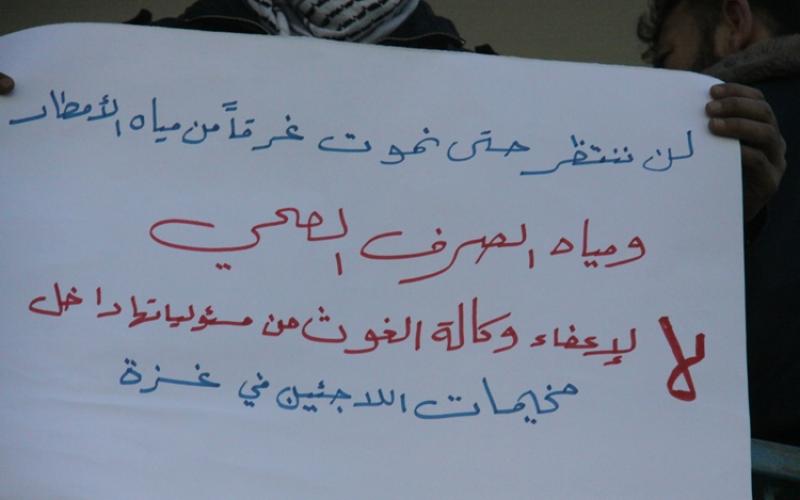 لن ننتظر حتى نموت غرقاً من مياه الأمطار
ومياه الصرف الصحي
لا لإعفاء وكالة الغوث من مسئولياتها داخل
مخيمات اللاجئين في غزة